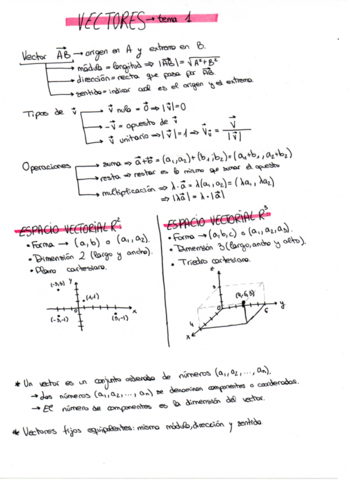 VECTORES → tema 1
Vector AB → origen en A y extremo en B.
→ módulo = longitud ⇒ |AB| = √A²+B²
→ dirección = recta que pasa por AB.
→ sentido = indicar cuál es el origen y el extremo.
Tipos de v → v nulo = 0 ⇒ |v| = 0
→ -v = opuesto de v
→ v unitario ⇒ |v| = 1 ⇒ Vᵤ = v / |v|
Operaciones → suma ⇒ a + b = (a₁, a₂) + (b₁, b₂) = (a₁+b₁, a₂+b₂)
→ resta ⇒ restar es lo mismo que sumar el opuesto
→ multiplicación ⇒ λ·a = λ(a₁, a₂) = (λa₁, λa₂)
⇒ |λa| = λ·|a|
ESPACIO VECTORIAL R²
• Forma → (a, b) o (a₁, a₂).
• Dimensión 2 (largo y ancho).
• Plano cartesiano.
y
x
ESPACIO VECTORIAL R³
• Forma → (a, b, c) o (a₁, a₂, a₃).
• Dimensión 3 (largo, ancho y alto).
• Triedro cartesiano.
(4,6,5)
y
6
4
x
* Un vector es un conjunto ordenado de números (a₁, a₂, ..., aₙ).
→ Los números (a₁, a₂, ..., aₙ) se denominan componentes o coordenadas.
→ El número de componentes es la dimensión del vector.
* Vectores fijos equipolentes: mismo módulo, dirección y sentido.